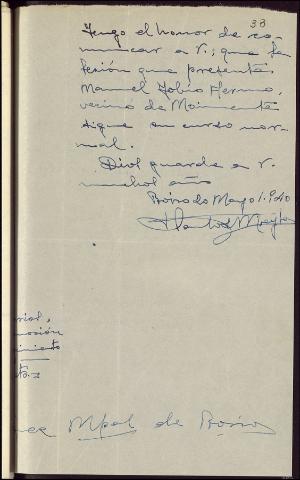 33
Tengo el honor de co-
municar a V.; que la
lesión que presenta
Manuel Tobío Hermo,
vecino de Moimenta
sigue su curso nor-
mal.
Diol guarde a V.
muchol año
Boiro do Mayo 1.940
rial,
moción
imiento
ta.=
Mpal de Boiro